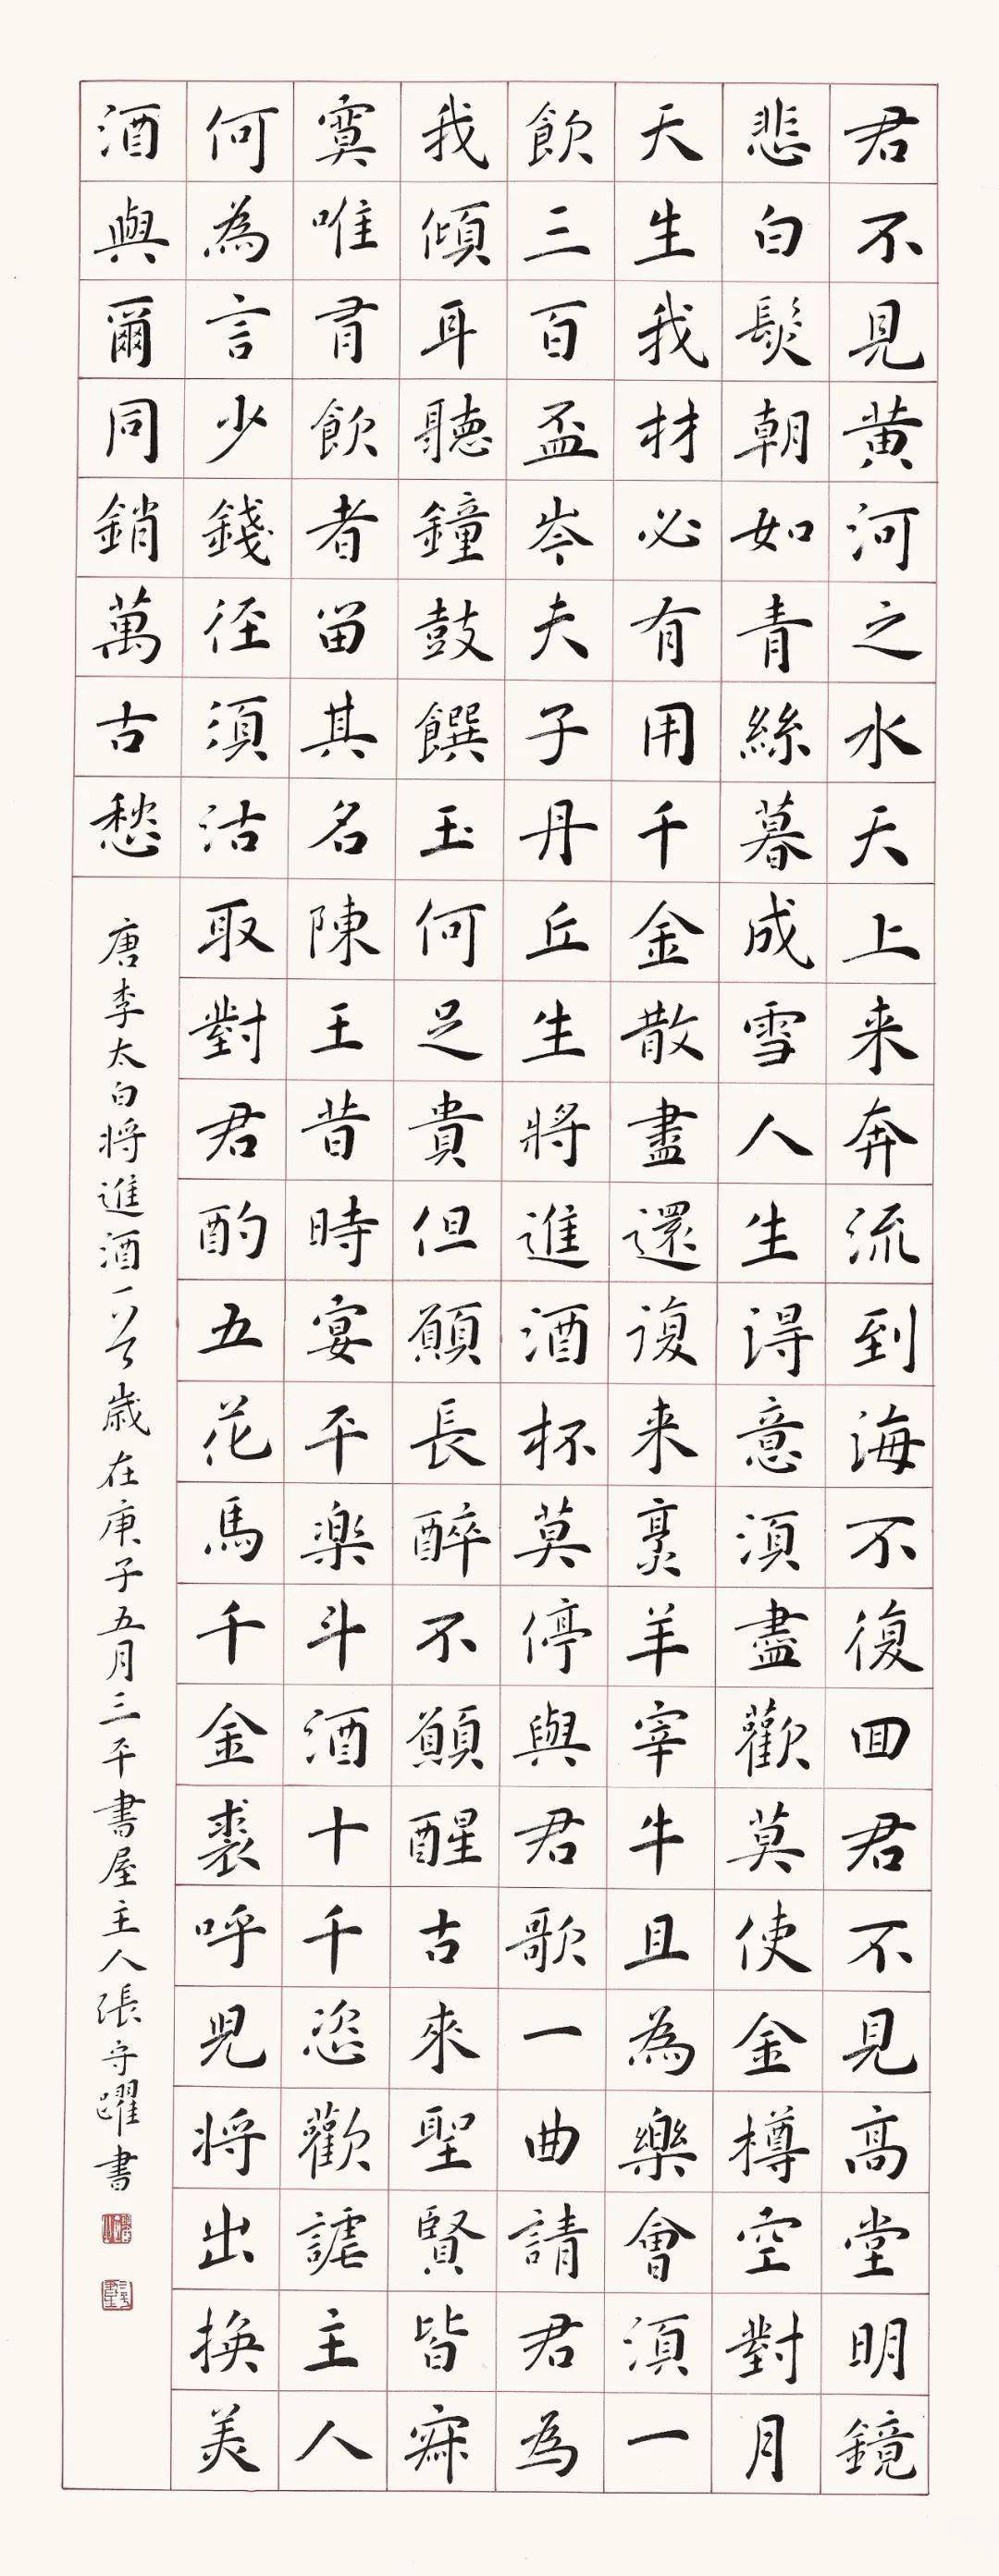 君不見黄河之水天上来奔流到海不復回君不見高堂明鏡
悲白髮朝如青絲暮成雪人生得意須盡歡莫使金樽空對月
天生我材必有用千金散盡還復来烹羊宰牛且為樂會須一
飲三百盃岑夫子丹丘生將進酒杯莫停與君歌一曲請君為
我傾耳聽鐘鼓饌玉何足貴但願長醉不願醒古來聖賢皆寂
寞唯有飲者留其名陳王昔時宴平楽斗酒十千恣歡謔主人
何為言少錢径須沽取對君酌五花馬千金裘呼児将出換美
酒與爾同銷萬古愁
唐李太白将進酒一首歲在庚子五月三平書屋主人張守躍書